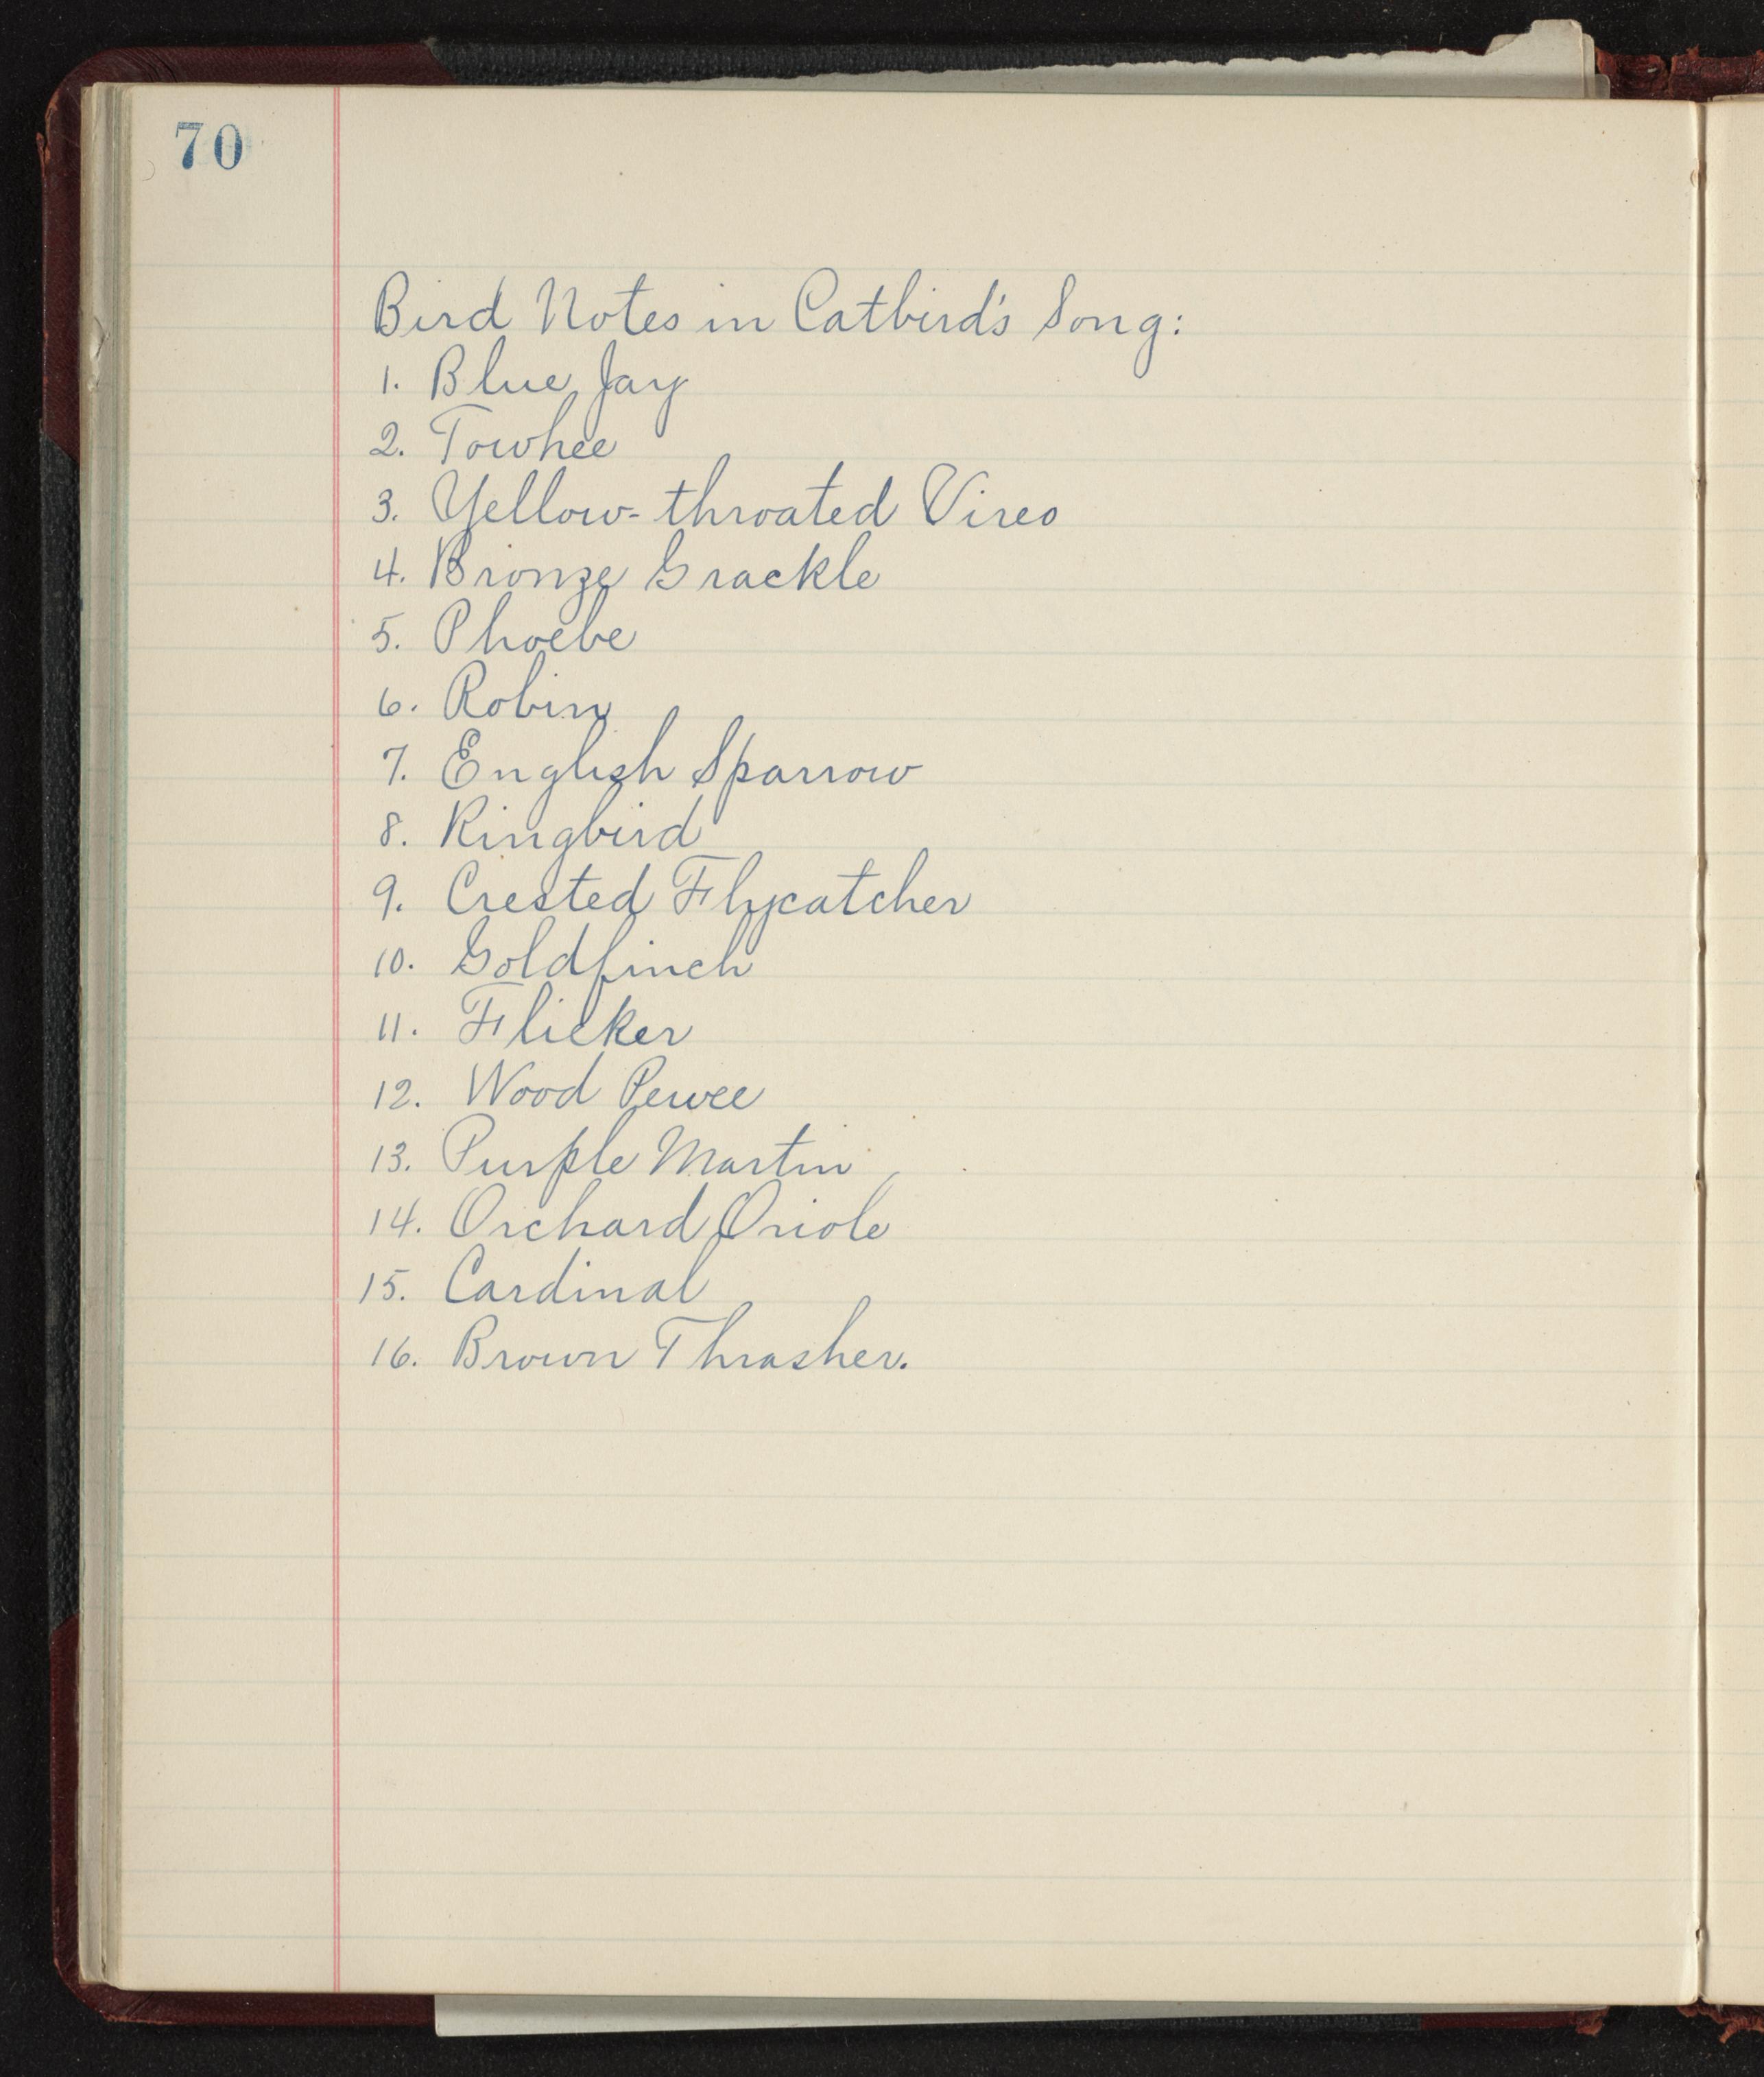 70
Bird Notes in Catbird's Song:
1. Blue Jay
2. Towhee
3. Yellow-throated Vireo
4. Bronze Grackle
5. Phoebe
6. Robin
7. English Sparrow
8. Kingbird
9. Crested Flycatcher
10. Goldfinch
11. Flicker
12. Wood Pewee
13. Purple Martin
14. Orchard Oriole
15. Cardinal
16. Brown Thrasher.